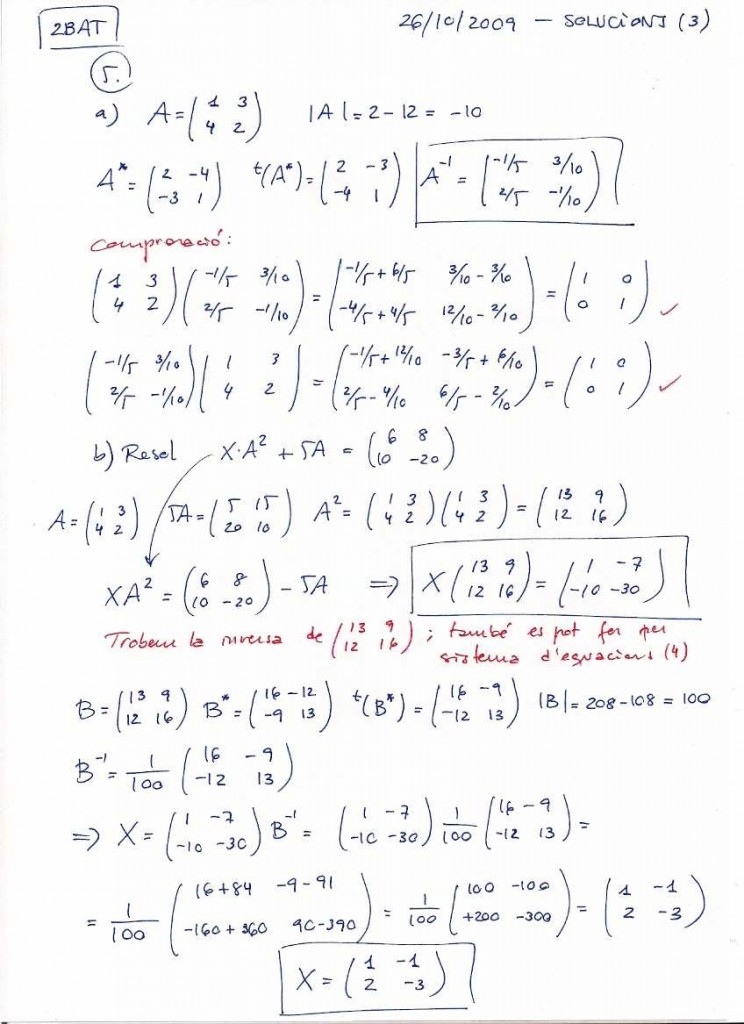 2BAT 26/10/2009 — SOLUCIONS (3)
5.
a) A = (1 3; 4 2) |A| = 2 - 12 = -10
A* = (2 -4; -3 1) t(A*) = (2 -3; -4 1) A⁻¹ = (-1/5 3/10; 2/5 -1/10)
Comprovació:
(1 3; 4 2) (-1/5 3/10; 2/5 -1/10) = (-1/5 + 6/5 3/10 - 3/10; -4/5 + 4/5 12/10 - 2/10) = (1 0; 0 1) ✓
(-1/5 3/10; 2/5 -1/10) (1 3; 4 2) = (-1/5 + 12/10 -3/5 + 6/10; 2/5 - 4/10 6/5 - 2/10) = (1 0; 0 1) ✓
b) Resol X·A² + 5A = (6 8; 10 -20)
A = (1 3; 4 2) 5A = (5 15; 20 10) A² = (1 3; 4 2) (1 3; 4 2) = (13 9; 12 16)
XA² = (6 8; 10 -20) - 5A ⇒ X (13 9; 12 16) = (1 -7; -10 -30)
Trobem la inversa de (13 9; 12 16) ; també es pot fer per
sistema d'equacions (4)
B = (13 9; 12 16) B* = (16 -12; -9 13) t(B*) = (16 -9; -12 13) |B| = 208 - 108 = 100
B⁻¹ = 1/100 (16 -9; -12 13)
⇒ X = (1 -7; -10 -30) B⁻¹ = (1 -7; -10 -30) 1/100 (16 -9; -12 13) =
= 1/100 (16+84 -9-91; -160+360 90-390) = 1/100 (100 -100; +200 -300) = (1 -1; 2 -3)
X = (1 -1; 2 -3)